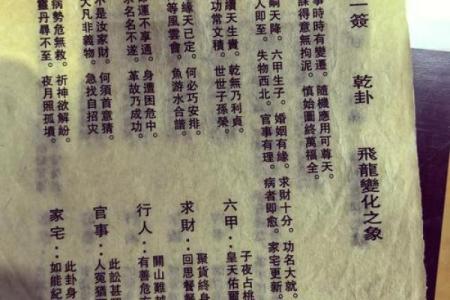 一簽 乾卦 飛龍變化之象
事時時有變遷。隨機應用可尊天。
課得意無拘泥。慎始圖終萬福全。
嗣天降。六甲生子。婚姻有緣。求財十分。功名大就。
人即至。失物西北。官事有理。病者即愈。家宅更新。
續天生貴。乾無乃利貞。
功常文積。世世子孫榮。
緣天已定。何必巧安排。
等風雲會。魚游水合諧。
運不享通。身遭困危中。
木名不遂。革故乃成功。
不是汝家財。何須首意猜。
大凡非義物。急找自招灾
病勢危無救。祈神欲解紛。
靈丹尋不至。夜月照孤墳。
六甲：
子夜占桃
皇天佑爾
求財：
聚貨終身
回思餐餐
行人：
關山難越
有善危方
官事：
此訟甚
人冤猶
家宅：
此卦身
如能紀